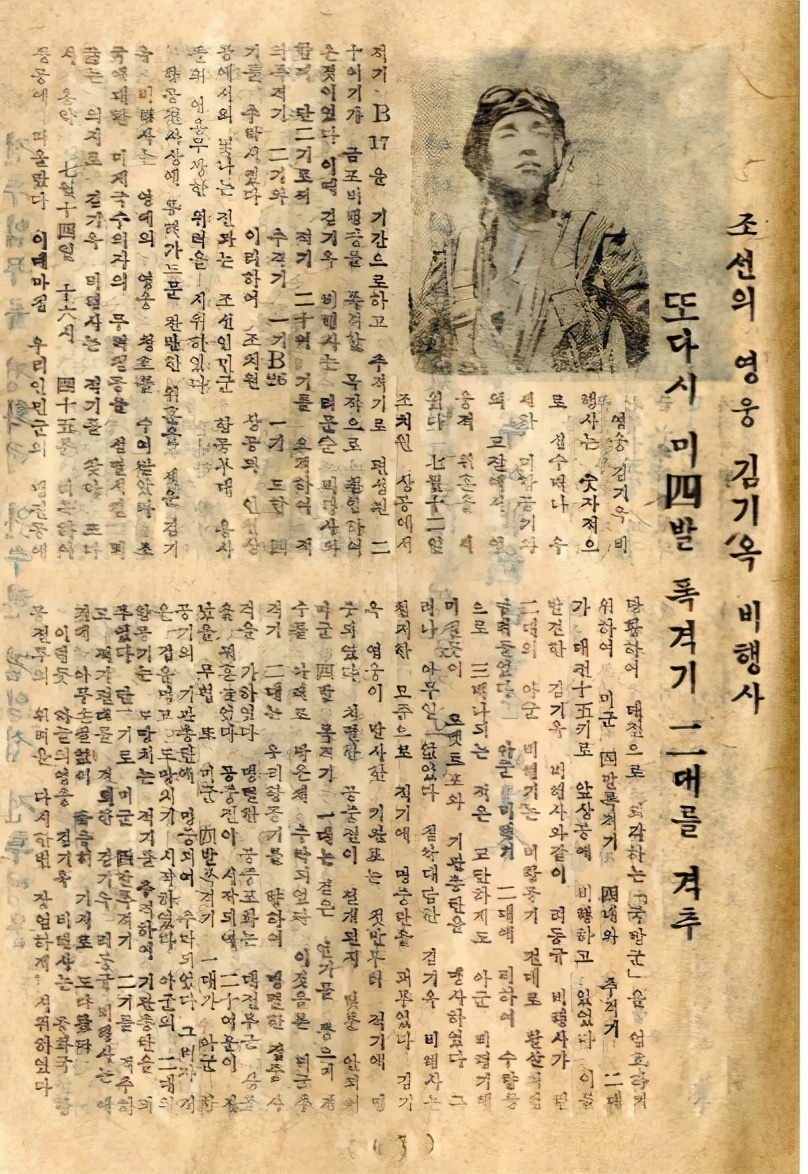 조선의 영웅 김기옥 비행사
또다시 미四발 폭격기 二대를 격추
영웅 김기옥 비
행사는 숫자적으
로 십수배나 우
세한 미항공기와
의 교전에서 
위훈을 세
웠다 七월十二일
조치원 상공에서
적기 B17을 기간으로하고 추격기로 편성된 二
十여기가 금포비행장을 폭격할 목적으로 침입하여
온것이였다 이때 김기옥 비행사는 비행사와
함께 단二기로써 적기 二十여 기를 요격하여 적
의추격기 二기와 추격기 一기 B26 一기 도합 四
기를 추락시켰다 이리하여 조치원 상공과 안성상
공에서의 빛나는 전과는 조선인민군 항공부대 용사
들의 영용무쌍한 위력을 시위하였다
항공전사상에 류례가드문 찬란한 위훈을 세운 김기
옥 비행사는 영예의 영웅 칭호를 수여받았다 조
국에대한 미제국주의자의 무력침공을 섬멸시킬 피
끓는 의지로 김기옥 비행사는 적기를 쫓아 또다
시 七월十四일 十六시 四十五분
떠올랐다 이때마침 우리인민군의
당황하여 대전으로 퇴각하는「국방군」을 엄호하기
위하여 미군 四발폭격기 四대와 추격기 二대
가 대전十五키로 앞상공에 비행하고 있었다 이를
발견한 김기옥 비행사와같이 리동규 비행사가 탄
二대의 아군 비행기는
아군 비행기 二대에 비하여 수량
으로 三배나되는 적은 아군 비행기에
로켓트포와 기관총탄을 명사하였다 그
러나 아무일 없었다 침착대담한 김기옥 비행사는
정확한 조준으로 적기에 명중탄을 퍼부었다 김기
옥 영웅이 발사한 기관포는 첫발부터 적기에 명
중되였다 치렬한 공중전이 전개된지 얼마 안되여
미군 四발 폭격기 一대는 검은 연기를 뿜으며
추락되였다 이것을본 미군
적기 二대는 우리항공기를 향하여 맹렬한 집중 사
격을 가하였다 맹렬한 공중포화는 대전부근 상공
을 뒤흔들었다 공중전이 시작되여 二十여분이
났을 무렵 또 미군 四발폭격기 一대가 아군 항
공기의 기관총탄에 명중되여 추락되였다 그러자 적
은 겁을먹고 도망치기 시작하였다 아군의 二대의
항공기는 도망치는 적기를 추격하여 기관총탄을 퍼
부었다 단二기로 미군 四발폭격기 二기를 격추하
고 적기편대를 격퇴한 김기옥 리동규 비행사는
아무손실없이 기지로 돌아왔다
이렇듯 하늘의영웅 김기옥 비행사는 공화국
공군의 위력을 다시한번 장엄하게 시위하였다
( 3 )